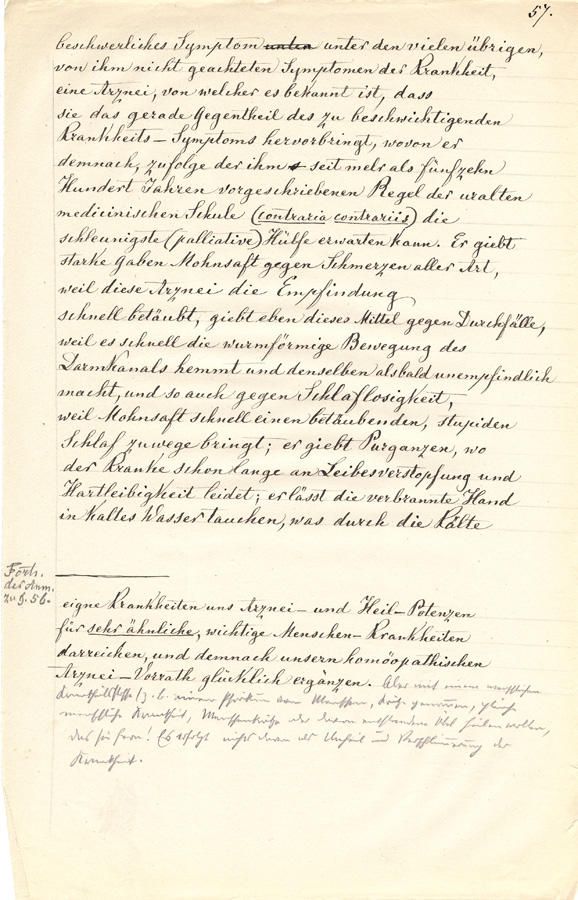 57.
beschwerliches Symptom unter unter den vielen übrigen,
von ihm nicht geachteten Symptomen der Krankheit,
eine Arznei, von welcher es bekannt ist, dass
sie das gerade Gegentheil des zu beschwichtigenden
Krankheits-Symptoms hervorbringt, wovon er
demnach, zufolge der ihm seit mehr als fünfzehn
Hundert Jahren vorgeschriebenen Regel der uralten
medicinischen Schule (contraria contrariis) die
schleunigste (palliative) Hülfe erwarten kann. Er giebt
starke Gaben Mohnsaft gegen Schmerzen aller Art,
weil diese Arznei die Empfindung
schnell betäubt, giebt eben dieses Mittel gegen Durchfälle,
weil es schnell die wurmförmige Bewegung des
Darmkanals hemmt und denselben alsbald unempfindlich
macht, und so auch gegen Schlaflosigkeit,
weil Mohnsaft schnell einen betäubenden, stupiden
Schlaf zuwege bringt; er giebt Purganzen, wo
der Kranke schon lange an Leibesverstopfung und
Hartleibigkeit leidet; er lässt die verbrannte Hand
in kaltes Wasser tauchen, was durch die Kälte
Forts.
der Anm.
zu §. 56.
eigne Krankheiten uns Arznei- und Heil-Potenzen
für sehr ähnliche, wichtige Menschen-Krankheiten
darreichen, und demnach unsern homöopathischen
Arznei-Vorrath glücklich ergänzen. Aber mit einem menschlichen
Krankheitsstoffe (z.b. einem Psorikum vom Menschen, Krätze genommen, gleiche
menschliche Krankheit, Menschenkrätze oder davon entstandene Übel heilen wollen,
das sei fern! Es erfolgt nichts davon als Unheil und Verschlimmerung der
Krankheit.